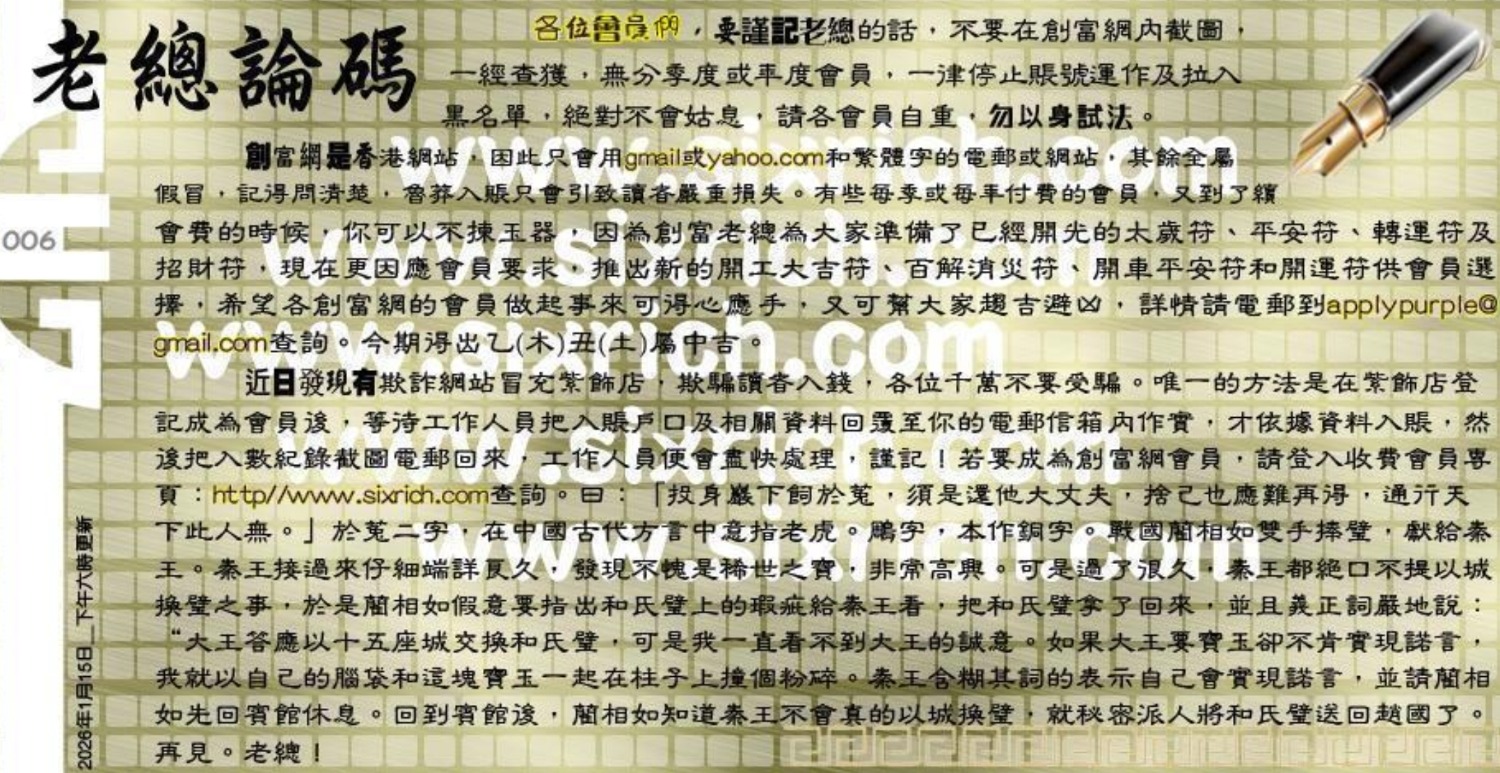 老總論碼
各位會員們，要謹記老總的話，不要在創富網內截圖，
一經查獲，無分季度或年度會員，一律停止賬號運作及拉入
黑名單，絕對不會姑息，請各會員自重，勿以身試法。
創富網是香港網站，因此只會用gmail或yahoo.com和繁體字的電郵或網站，其餘全屬
假冒，記得問清楚，魯莽入賬只會引致讀者嚴重損失。有些每季或每年付費的會員，又到了續
會費的時候，你可以不揀玉器，因為創富老總為大家準備了已經開光的太歲符、平安符、轉運符及
招財符，現在更因應會員要求，推出新的開工大吉符、百解消災符、開車平安符和開運符供會員選
擇，希望各創富網的會員做起事來可得心應手，又可幫大家趨吉避凶，詳情請電郵到applypurple@
gmail.com查詢。今期得出乙(木)丑(土)屬中吉。
近日發現有欺詐網站冒充紫飾店，欺騙讀者入錢，各位千萬不要受騙。唯一的方法是在紫飾店登
記成為會員後，等待工作人員把入賬戶口及相關資料回覆至你的電郵信箱內作實，才依據資料入賬，然
後把入數紀錄截圖電郵回來，工作人員便會盡快處理，謹記！若要成為創富網會員，請登入收費會員專
頁：http//www.sixrich.com查詢。曰：「投身巖下飼於菟，須是還他大丈夫，捨己也應難再得，通行天
下此人無。」於菟二字，在中國古代方言中意指老虎。鵰字，本作鋼字。戰國藺相如雙手捧璧，獻給秦
王。秦王接過來仔細端詳良久，發現不愧是稀世之寶，非常高興。可是過了很久，秦王都絕口不提以城
換璧之事，於是藺相如假意要指出和氏璧上的瑕疵給秦王看，把和氏璧拿了回來，並且義正詞嚴地說：
“大王答應以十五座城交換和氏璧，可是我一直看不到大王的誠意。如果大王要寶玉卻不肯實現諾言，
我就以自己的腦袋和這塊寶玉一起在柱子上撞個粉碎。秦王含糊其詞的表示自己會實現諾言，並請藺相
如先回賓館休息。回到賓館後，藺相如知道秦王不會真的以城換璧，就秘密派人將和氏璧送回趙國了。
再見。老總！
006
2026年1月15日__下午六時更新
www.sixrich.com
www.sixrich.com
www.sixrich.com
www.sixrich.com
www.sixrich.com